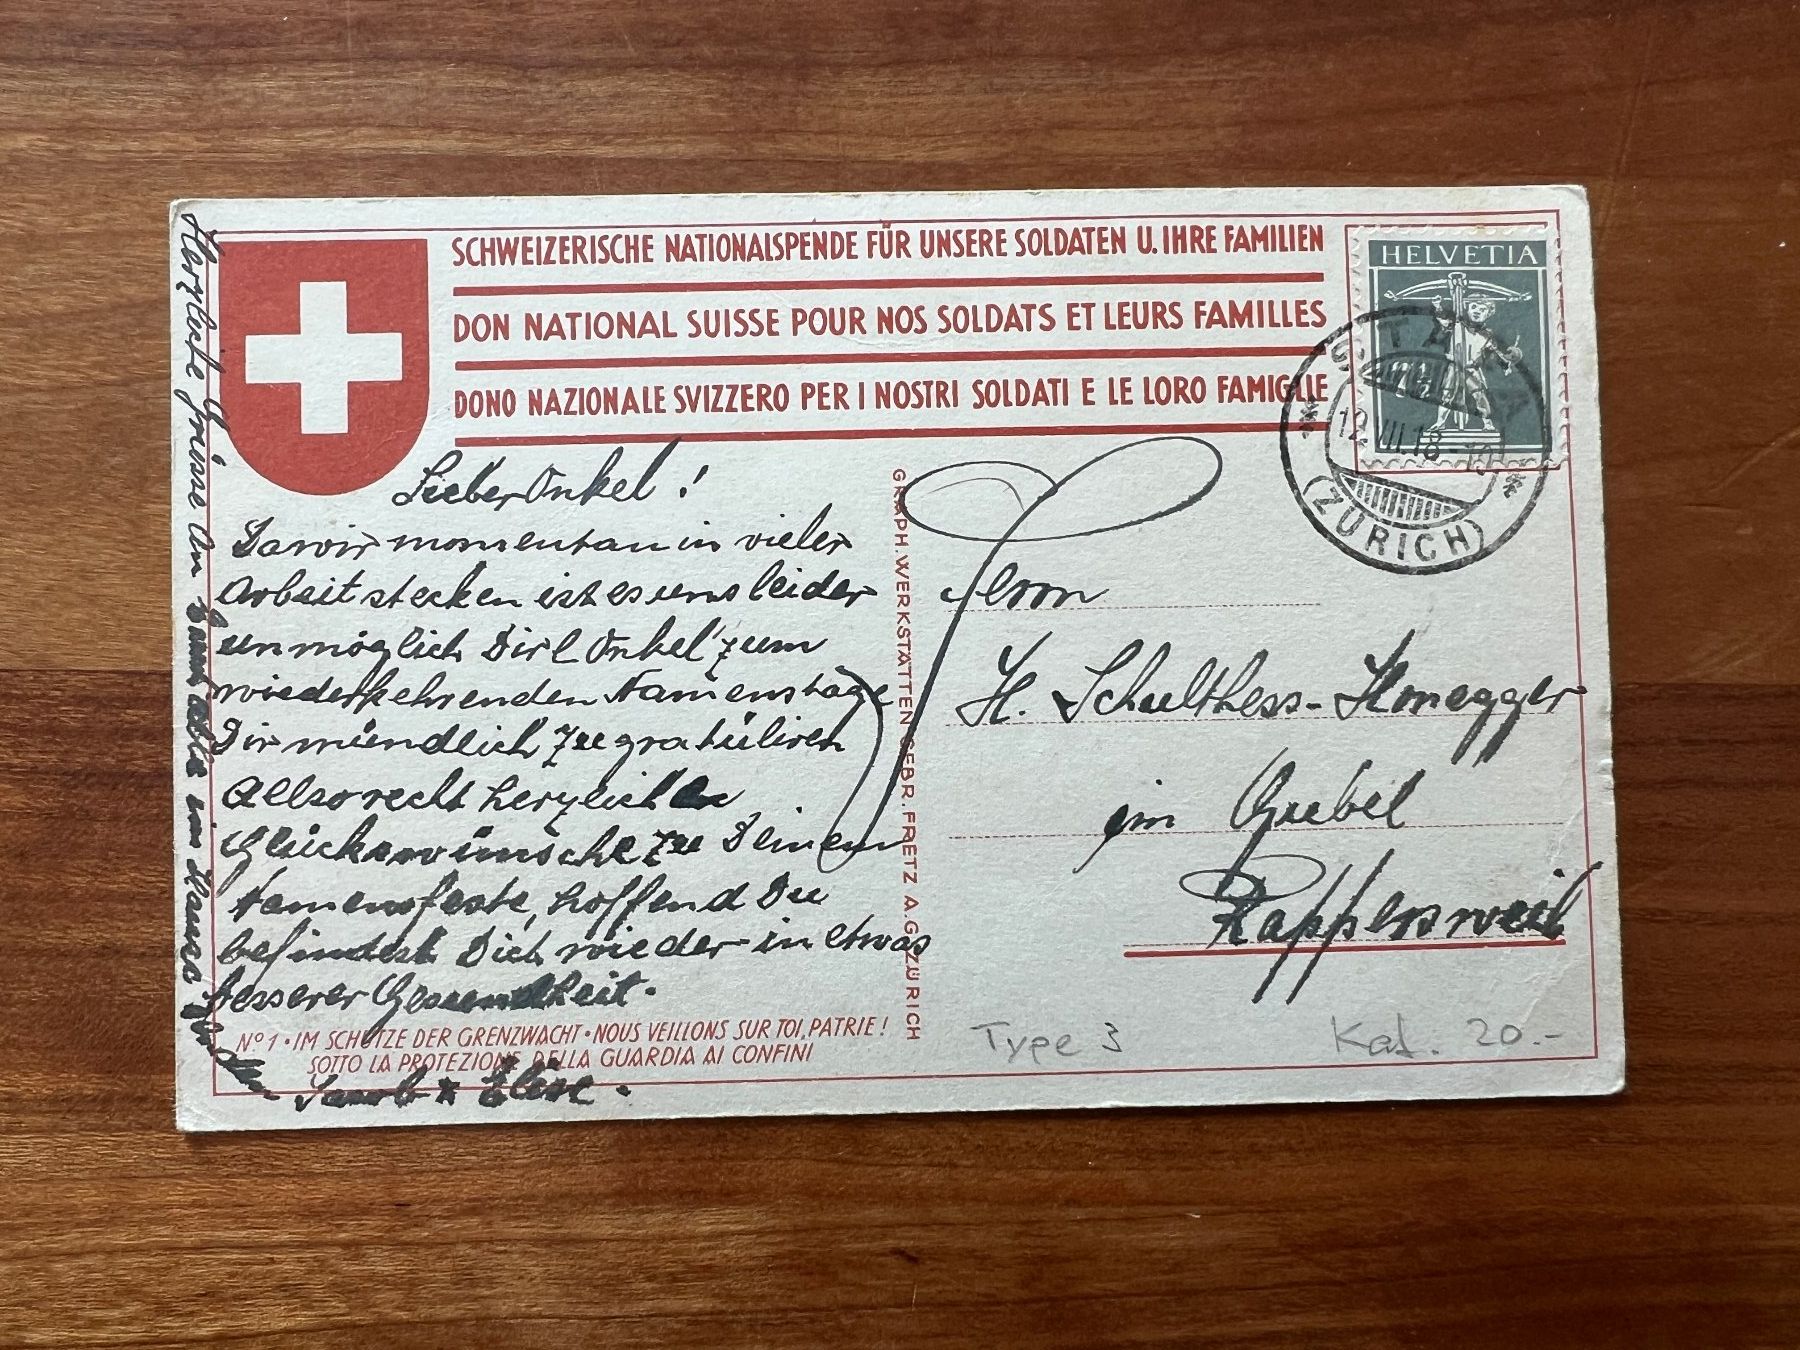 SCHWEIZERISCHE NATIONALSPENDE FÜR UNSERE SOLDATEN U. IHRE FAMILIEN
DON NATIONAL SUISSE POUR NOS SOLDATS ET LEURS FAMILLES
DONO NAZIONALE SVIZZERO PER I NOSTRI SOLDATI E LE LORO FAMIGLIE
HELVETIA
STÄFA
12.III.18-10
(ZÜRICH)
Lieber Onkel!
Da wir momentan in vieler
Arbeit stecken ist es uns leider
unmöglich Dir l Onkel zum
wiederkehrenden Namenstage
Dir mündlich zu gratuliren
Allso recht herzlichen
Glückswünsche zu Deinem
Namensfeste, hoffend Du
befindest Dich wieder in etwas
besserer Gesundheit.
Jacob & Elise.
Herzliche Grüsse an Euch alle im Hause
GRAPH. WERKSTÄTTEN GEBR. FRETZ A.G. ZÜRICH
Herrn
H. Schulthess-Honegger
im Gubel
Rapperswil
Nº 1 • IM SCHUTZE DER GRENZWACHT • NOUS VEILLONS SUR TOI, PATRIE!
SOTTO LA PROTEZIONE DELLA GUARDIA AI CONFINI
Type 3
Kat. 20.-